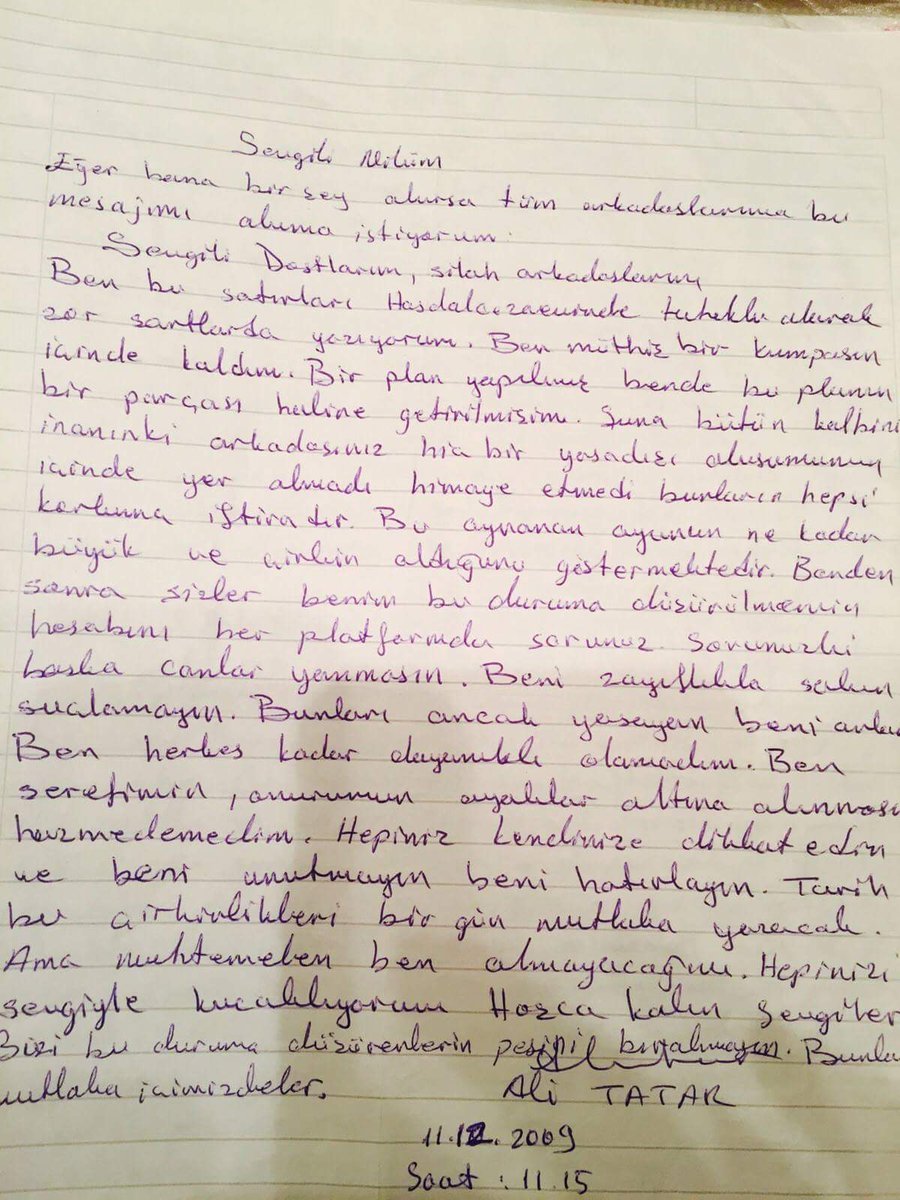 Sevgili Nilüm
Eğer bana bir şey olursa tüm arkadaşlarıma bu
mesajımı okuma istiyorum.
Sevgili Dostlarım, silah arkadaşlarım
Ben bu satırları Hasdal cezaevinde tutuklu olarak
zor şartlarda yazıyorum. Ben müthiş bir kumpasın
içinde kaldım. Bir plan yapılmış bende bu planın
bir parçası haline getirilmişim. Şuna bütün kalbini
inanınki arkadaşınız hiç bir yasadışı oluşumunun
içinde yer almadı himaye etmedi bunların hepsi
korkunç iftiradır. Bu oynanan oyunun ne kadar
büyük ve çirkin olduğunu göstermektedir. Benden
sonra sizler benim bu duruma düşürülmemin
hesabını her platformda sorunuz. Sorunuzki
başka canlar yanmasın. Beni zayıflıkla sakın
suçlamayın. Bunları ancak yaşayan beni anlar
Ben herkes kadar dayanıklı olamadım. Ben
şerefimin, onurumun ayaklar altına alınması
hazmedemedim. Hepiniz kendinize dikkat edin
ve beni unutmayın beni hatırlayın. Tarih
bu çirkinlikleri bir gün mutlaka yazacak.
Ama muhtemelen ben olmayacağım. Hepinizi
sevgiyle kucaklıyorum Hoşca kalın Sevgiler
Bizi bu duruma düşürenlerin peşini bırakmayın. Bunlar
mutlaka içimizdeler.
Ali TATAR
11.12.2009
Saat : 11.15